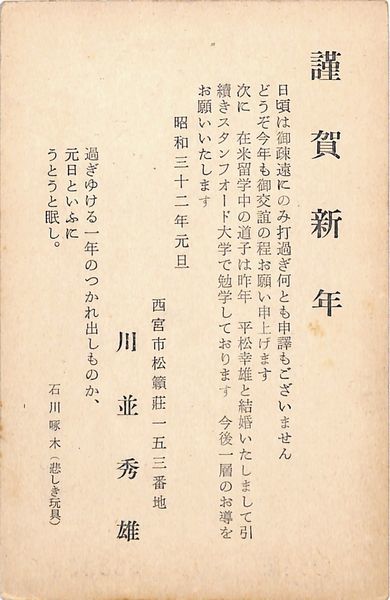 謹賀新年
日頃は御疎遠にのみ打過ぎ何とも申譯もございません
どうぞ今年も御交誼の程お願い申上げます
次に　在米留学中の道子は昨年　平松幸雄と結婚いたしまして引
続きスタンフォード大学で勉学しております　今後一層のお導を
お願いいたします
昭和三十二年元旦
西宮市松籟荘一五三番地
川並秀雄
過ぎゆける一年のつかれ出しものか、
元日といふに
うとうと眠し。
石川啄木（悲しき玩具）